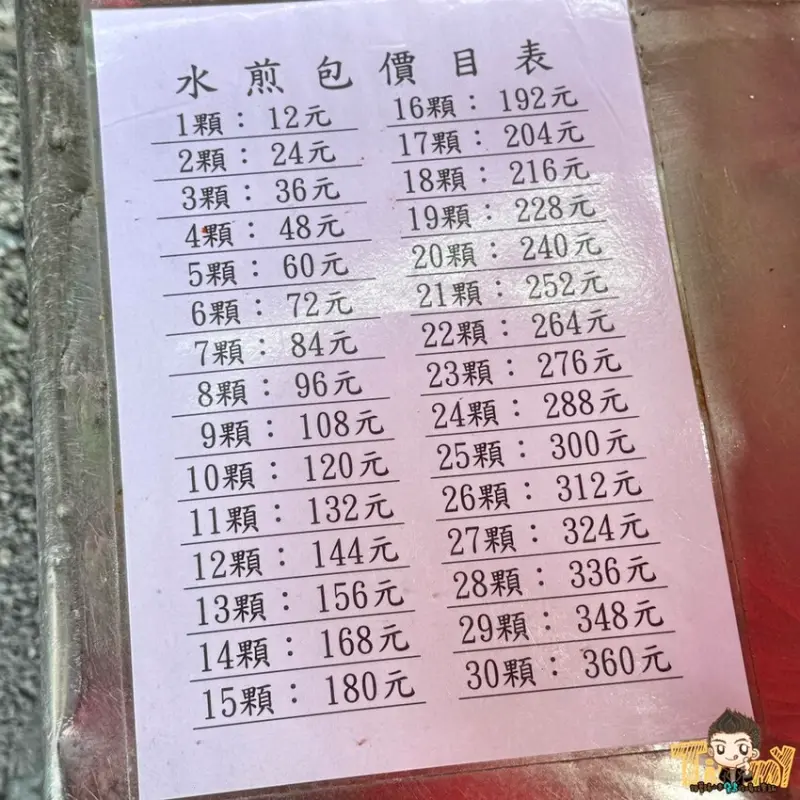 水煎包價目表
1顆：12元
2顆：24元
3顆：36元
4顆：48元
5顆：60元
6顆：72元
7顆：84元
8顆：96元
9顆：108元
10顆：120元
11顆：132元
12顆：144元
13顆：156元
14顆：168元
15顆：180元
16顆：192元
17顆：204元
18顆：216元
19顆：228元
20顆：240元
21顆：252元
22顆：264元
23顆：276元
24顆：288元
25顆：300元
26顆：312元
27顆：324元
28顆：336元
29顆：348元
30顆：360元